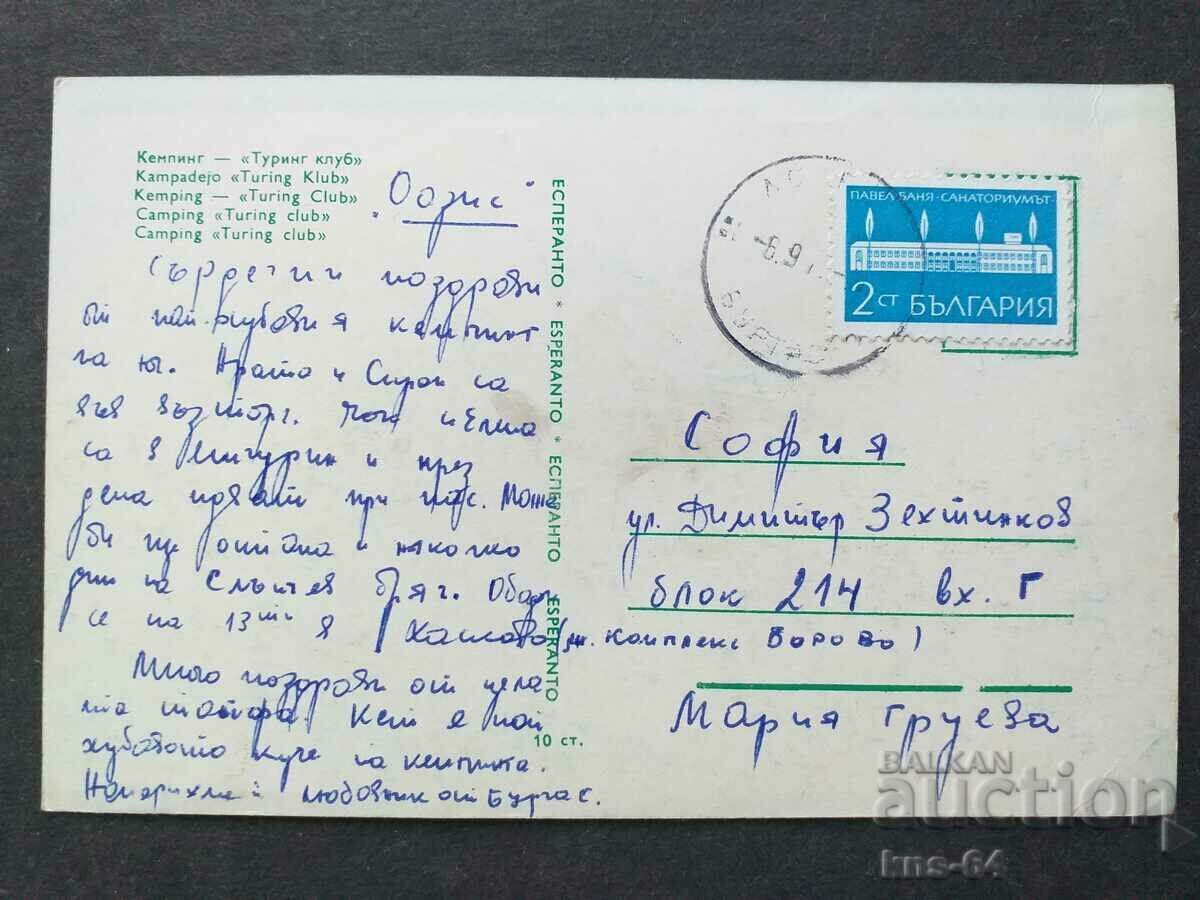 Кемпинг — «Туринг клуб»
Kampadejo «Turing Klub»
Kemping — «Turing Club»
Camping «Turing club»
Camping «Turing club»
„Оазис“
Сърдечни поздрави
от най-хубавия кемпинг
на юг. и са
във възторг.
са в Мичурин и през
деня идват при нас. Може
би ще остана и няколко
дни на Слънчев бряг.
се на 13ти в Хасково
Много поздрави от цяла
та тайфа. Кет е най
хубавото куче на кемпинга.
любовник от Бургас.
ЕСПЕРАНТО * ESPERANTO * ЕСПЕРАНТО ESPERANTO
10 ст.
-6.9
БУРГАС
ПАВЕЛ БАНЯ·САНАТОРИУМЪТ
2 СТ БЪЛГАРИЯ
София
ул. Димитър Зехтинков
блок 214 вх. Г
(ж. комплекс Борово)
Мария Груева
BALKAN
auction
kns-64